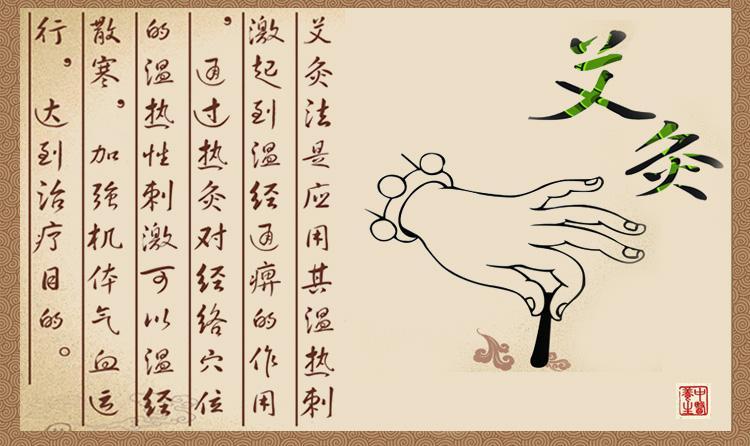 艾灸
艾灸法是应用其温热刺
激起到温经通痹的作用
，通过热灸对经络穴位
的温热性刺激可以温经
散寒，加强机体气血运
行，达到治疗目的。
中醫
養生